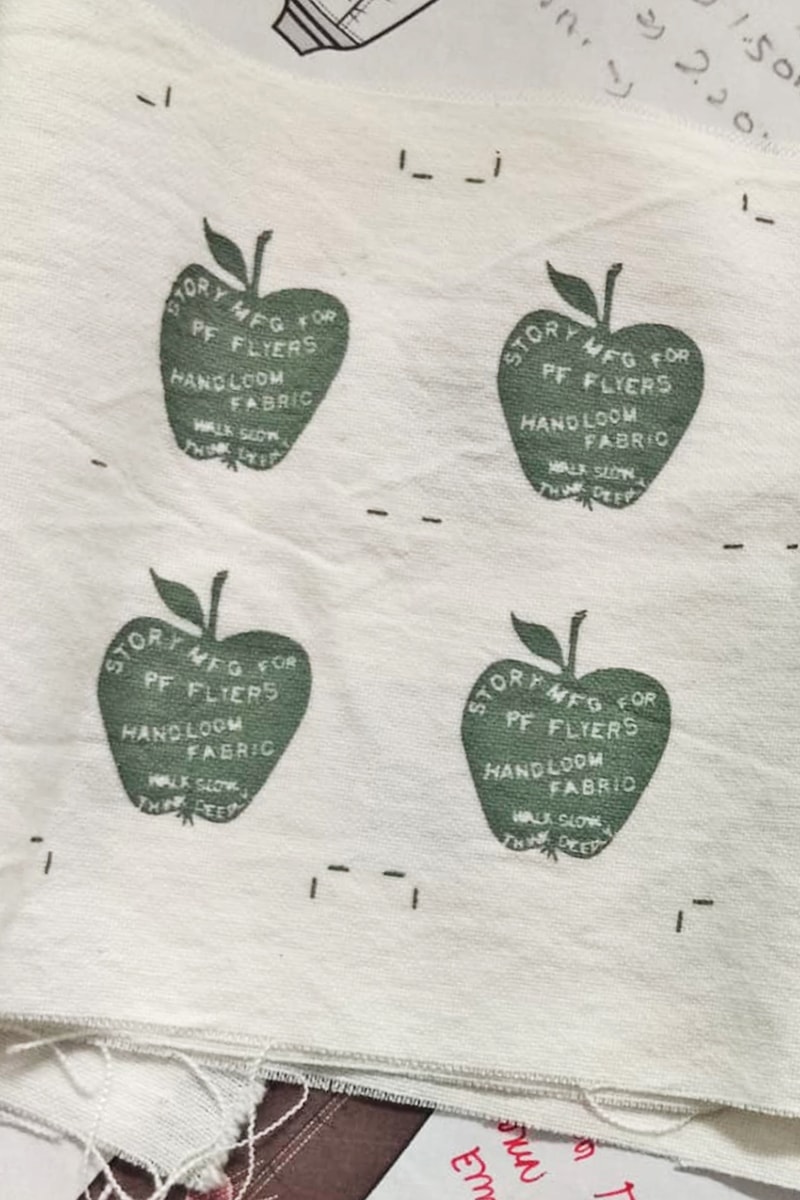 1.50
2.20
STORY MFG FOR
PF FLYERS
HANDLOOM
FABRIC
WALK SLOW,
THINK DEEP
STORY MFG FOR
PF FLYERS
HANDLOOM
FABRIC
WALK SLOW,
THINK DEEP
STORY MFG FOR
PF FLYERS
HANDLOOM
FABRIC
WALK SLOW,
THINK DEEP
STORY MFG FOR
PF FLYERS
HANDLOOM
FABRIC
WALK SLOW,
THINK DEEP